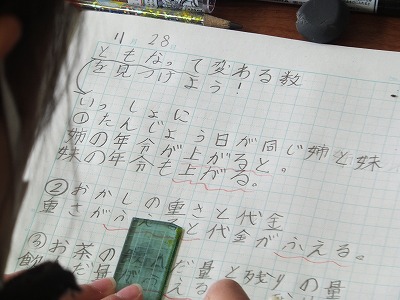 11 28
ともなって変わる数
を見つけよう!
いっしょに
①たんじょう日が同じ姉と妹
姉の年分が上がると。
妹の年分も上がる。
②おかしの重さと代金
重さがふえると代金がふえる。
③お茶の だ量と残りの量
飲んだ量 える